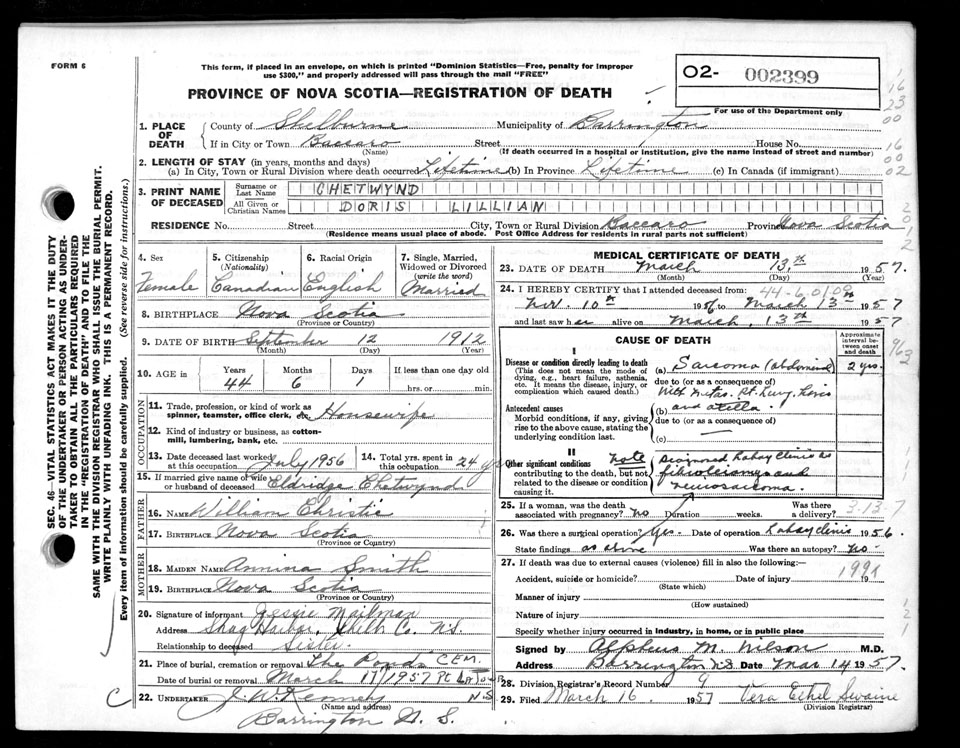 FORM 6
This form, if placed in an envelope, on which is printed "Dominion Statistics—Free, penalty for improper
use $300," and properly addressed will pass through the mail "FREE"
PROVINCE OF NOVA SCOTIA—REGISTRATION OF DEATH
02- 002399
For use of the Department only
1. PLACE OF DEATH
County of Shelburne Municipality of Barrington
If in City or Town Baccaro Street House No.
(Name) (If death occurred in a hospital or institution, give the name instead of street and number)
2. LENGTH OF STAY (in years, months and days)
(a) In City, Town or Rural Division where death occurred Lifetime (b) In Province Lifetime (c) In Canada (if immigrant)
3. PRINT NAME OF DECEASED
Surname or Last Name CHETWYND
All Given or Christian Names DORIS LILLIAN
RESIDENCE No. Street City, Town or Rural Division Baccaro Province Nova Scotia
(Residence means usual place of abode. Post Office Address for residents in rural parts not sufficient)
4. Sex
Female
5. Citizenship (Nationality)
Canadian
6. Racial Origin
English
7. Single, Married, Widowed or Divorced (write the word)
Married
8. BIRTHPLACE Nova Scotia
(Province or Country)
9. DATE OF BIRTH September 12 1912
(Month) (Day) (Year)
10. AGE Years Months Days If less than one day old
44 6 1 hrs. or min.
OCCUPATION
11. Trade, profession, or kind of work as
spinner, teamster, office clerk, etc. Housewife
12. Kind of industry or business, as cotton-
mill, lumbering, bank, etc.
13. Date deceased last worked at this occupation July 1956
14. Total yrs. spent in this occupation 24 yrs
15. If married give name of wife or husband of deceased Eldridge Chetwynd
FATHER
16. NAME William Christie
17. BIRTHPLACE Nova Scotia
(Province or Country)
MOTHER
18. MAIDEN NAME Annina Smith
19. BIRTHPLACE Nova Scotia
(Province or Country)
20. Signature of informant Jessie Mailman
Address Shag Harbor, Shelb. Co. N.S.
Relationship to deceased Sister
21. Place of burial, cremation or removal The Ponds CEM.
Date of burial or removal March 17/1957
22. UNDERTAKER J. W. Kenney N.S
(Name and address)
Barrington N. S.
MEDICAL CERTIFICATE OF DEATH
23. DATE OF DEATH March 13th 1957.
(Month) (Day) (Year)
24. I HEREBY CERTIFY that I attended deceased from:
10th 1956 to March 13th 1957
and last saw her alive on March, 13th 1957
CAUSE OF DEATH
Approximate interval between onset and death
I
Disease or condition directly leading to death
(This does not mean the mode of
dying, e.g., heart failure, asthenia,
etc. It means the disease, injury, or
complication which caused death.)
(a) Sarcoma (abdominal) 2 yrs.
due to (or as a consequence of)
With metas. Rt. Lung,
Antecedent causes
Morbid conditions, if any, giving
rise to the above cause, stating the
underlying condition last.
(b) and
due to (or as a consequence of)
(c) —
II
Other significant conditions
contributing to the death, but not
related to the disease or condition
causing it.
Note Diagnosed Lahey Clinic as
and
25. If a woman, was the death associated with pregnancy? No Duration weeks. Was there a delivery?
3-13-7
26. Was there a surgical operation? Yes. Date of operation Lahey Clinic 1956.
State findings as above Was there an autopsy? No
27. If death was due to external causes (violence) fill in also the following:—
1991
Accident, suicide or homicide? Date of injury 19
(State which)
Manner of injury
(How sustained)
Nature of injury
Specify whether injury occurred in industry, in home, or in public place
Signed by Alpheus M. Wilson M.D.
Address Barrington N.S. Date Mar 14 1957.
28. Division Registrar's Record Number 9
29. Filed March 16 1957 Vera Ethel Swaine
(Division Registrar)
SEC. 46- VITAL STATISTICS ACT MAKES IT THE DUTY
OF THE UNDERTAKER OR PERSON ACTING AS UNDER-
TAKER TO OBTAIN ALL THE PARTICULARS REQUIRED
IN THE "REGISTRATION OF DEATH" AND TO FILE THE
SAME WITH THE DIVISION REGISTRAR WHO SHALL ISSUE THE BURIAL PERMIT.
WRITE PLAINLY WITH UNFADING INK. THIS IS A PERMANENT RECORD.
Every item of information should be carefully supplied. (See reverse side for instructions.)